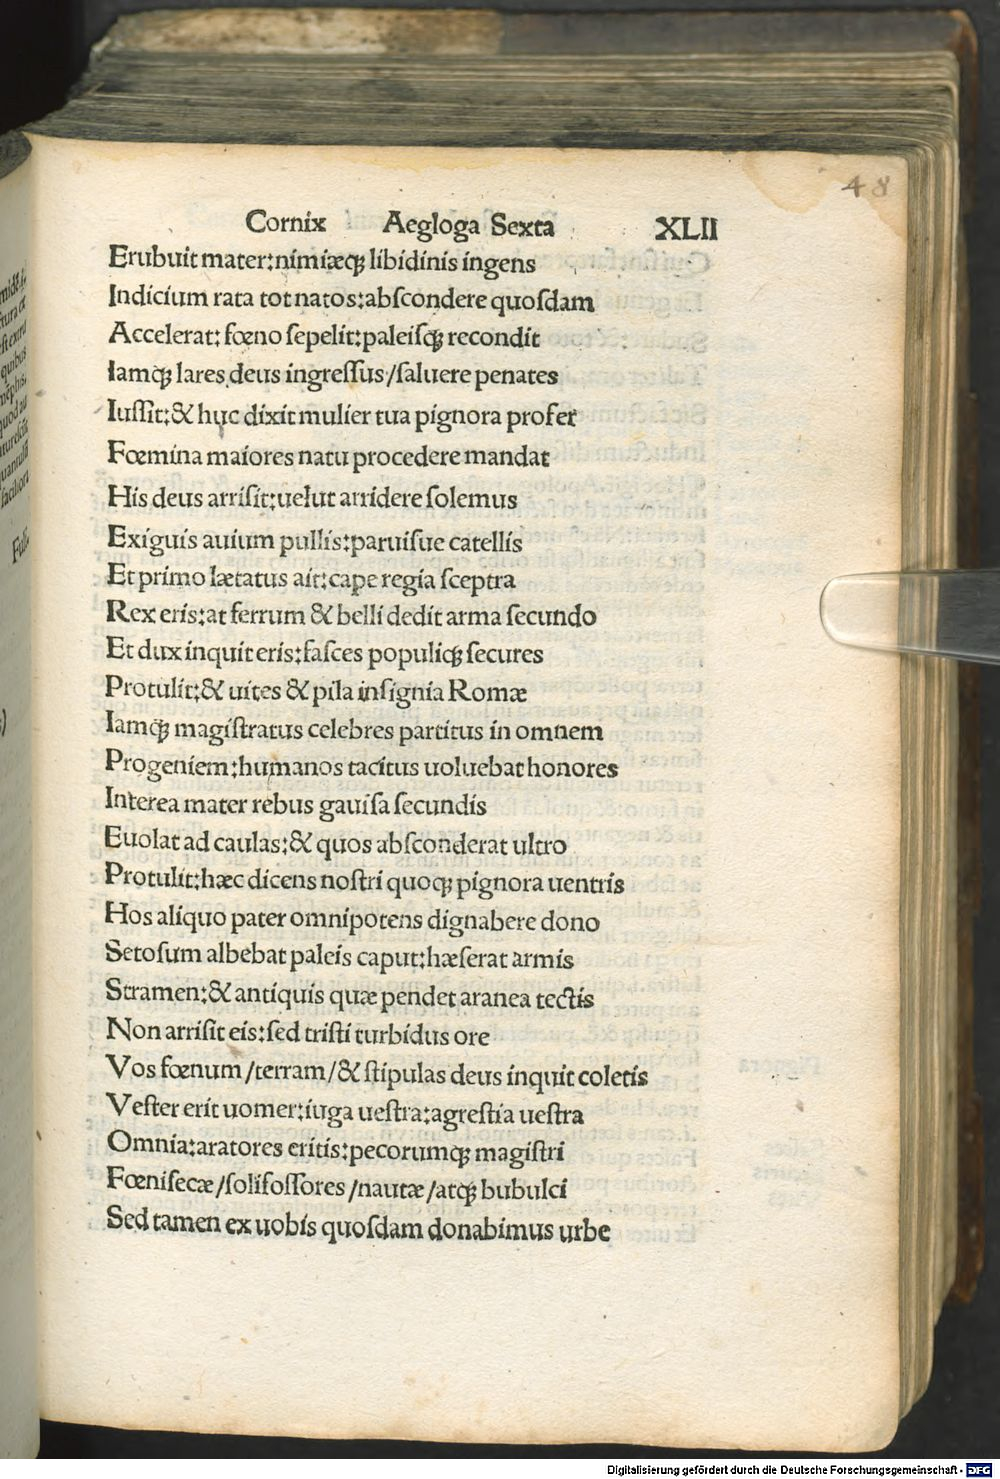 48
Cornix Aegloga Sexta XLII
Erubuit mater:nimiæqꝫ libidinis ingens
Indicium rata tot natos:abſcondere quoſdam
Accelerat:fœno ſepelit:paleiſqꝫ recondit
Iamqꝫ lares deus ingreſſus/ſaluere penates
Iuſſit:& huc dixit mulier tua pignora profer
Fœmina maiores natu procedere mandat
His deus arriſit:uelut arridere ſolemus
Exiguis auium pullis:paruiſue catellis
Et primo lætatus ait:cape regia ſceptra
Rex eris:at ferrum & belli dedit arma ſecundo
Et dux inquit eris:faſces populiqꝫ ſecures
Protulit:& uites & pila inſignia Romæ
Iamqꝫ magiſtratus celebres partitus in omnem
Progeniem:humanos tacitus uoluebat honores
Interea mater rebus gauiſa ſecundis
Euolat ad caulas:& quos abſconderat ultro
Protulit:hæc dicens noſtri quoqꝫ pignora uentris
Hos aliquo pater omnipotens dignabere dono
Setoſum albebat paleis caput:hæſerat armis
Stramen:& antiquis quæ pendet aranea tectis
Non arriſit eis:ſed triſti turbidus ore
Vos fœnum/terram/& ſtipulas deus inquit coletis
Veſter erit uomer:iuga ueſtra:agreſtia ueſtra
Omnia:aratores eritis:pecorumqꝫ magiſtri
Fœniſecæ/ſolifoſſores/nautæ/atqꝫ bubulci
Sed tamen ex uobis quoſdam donabimus urbe
Digitalisierung gefördert durch die Deutsche Forschungsgemeinschaft - DFG